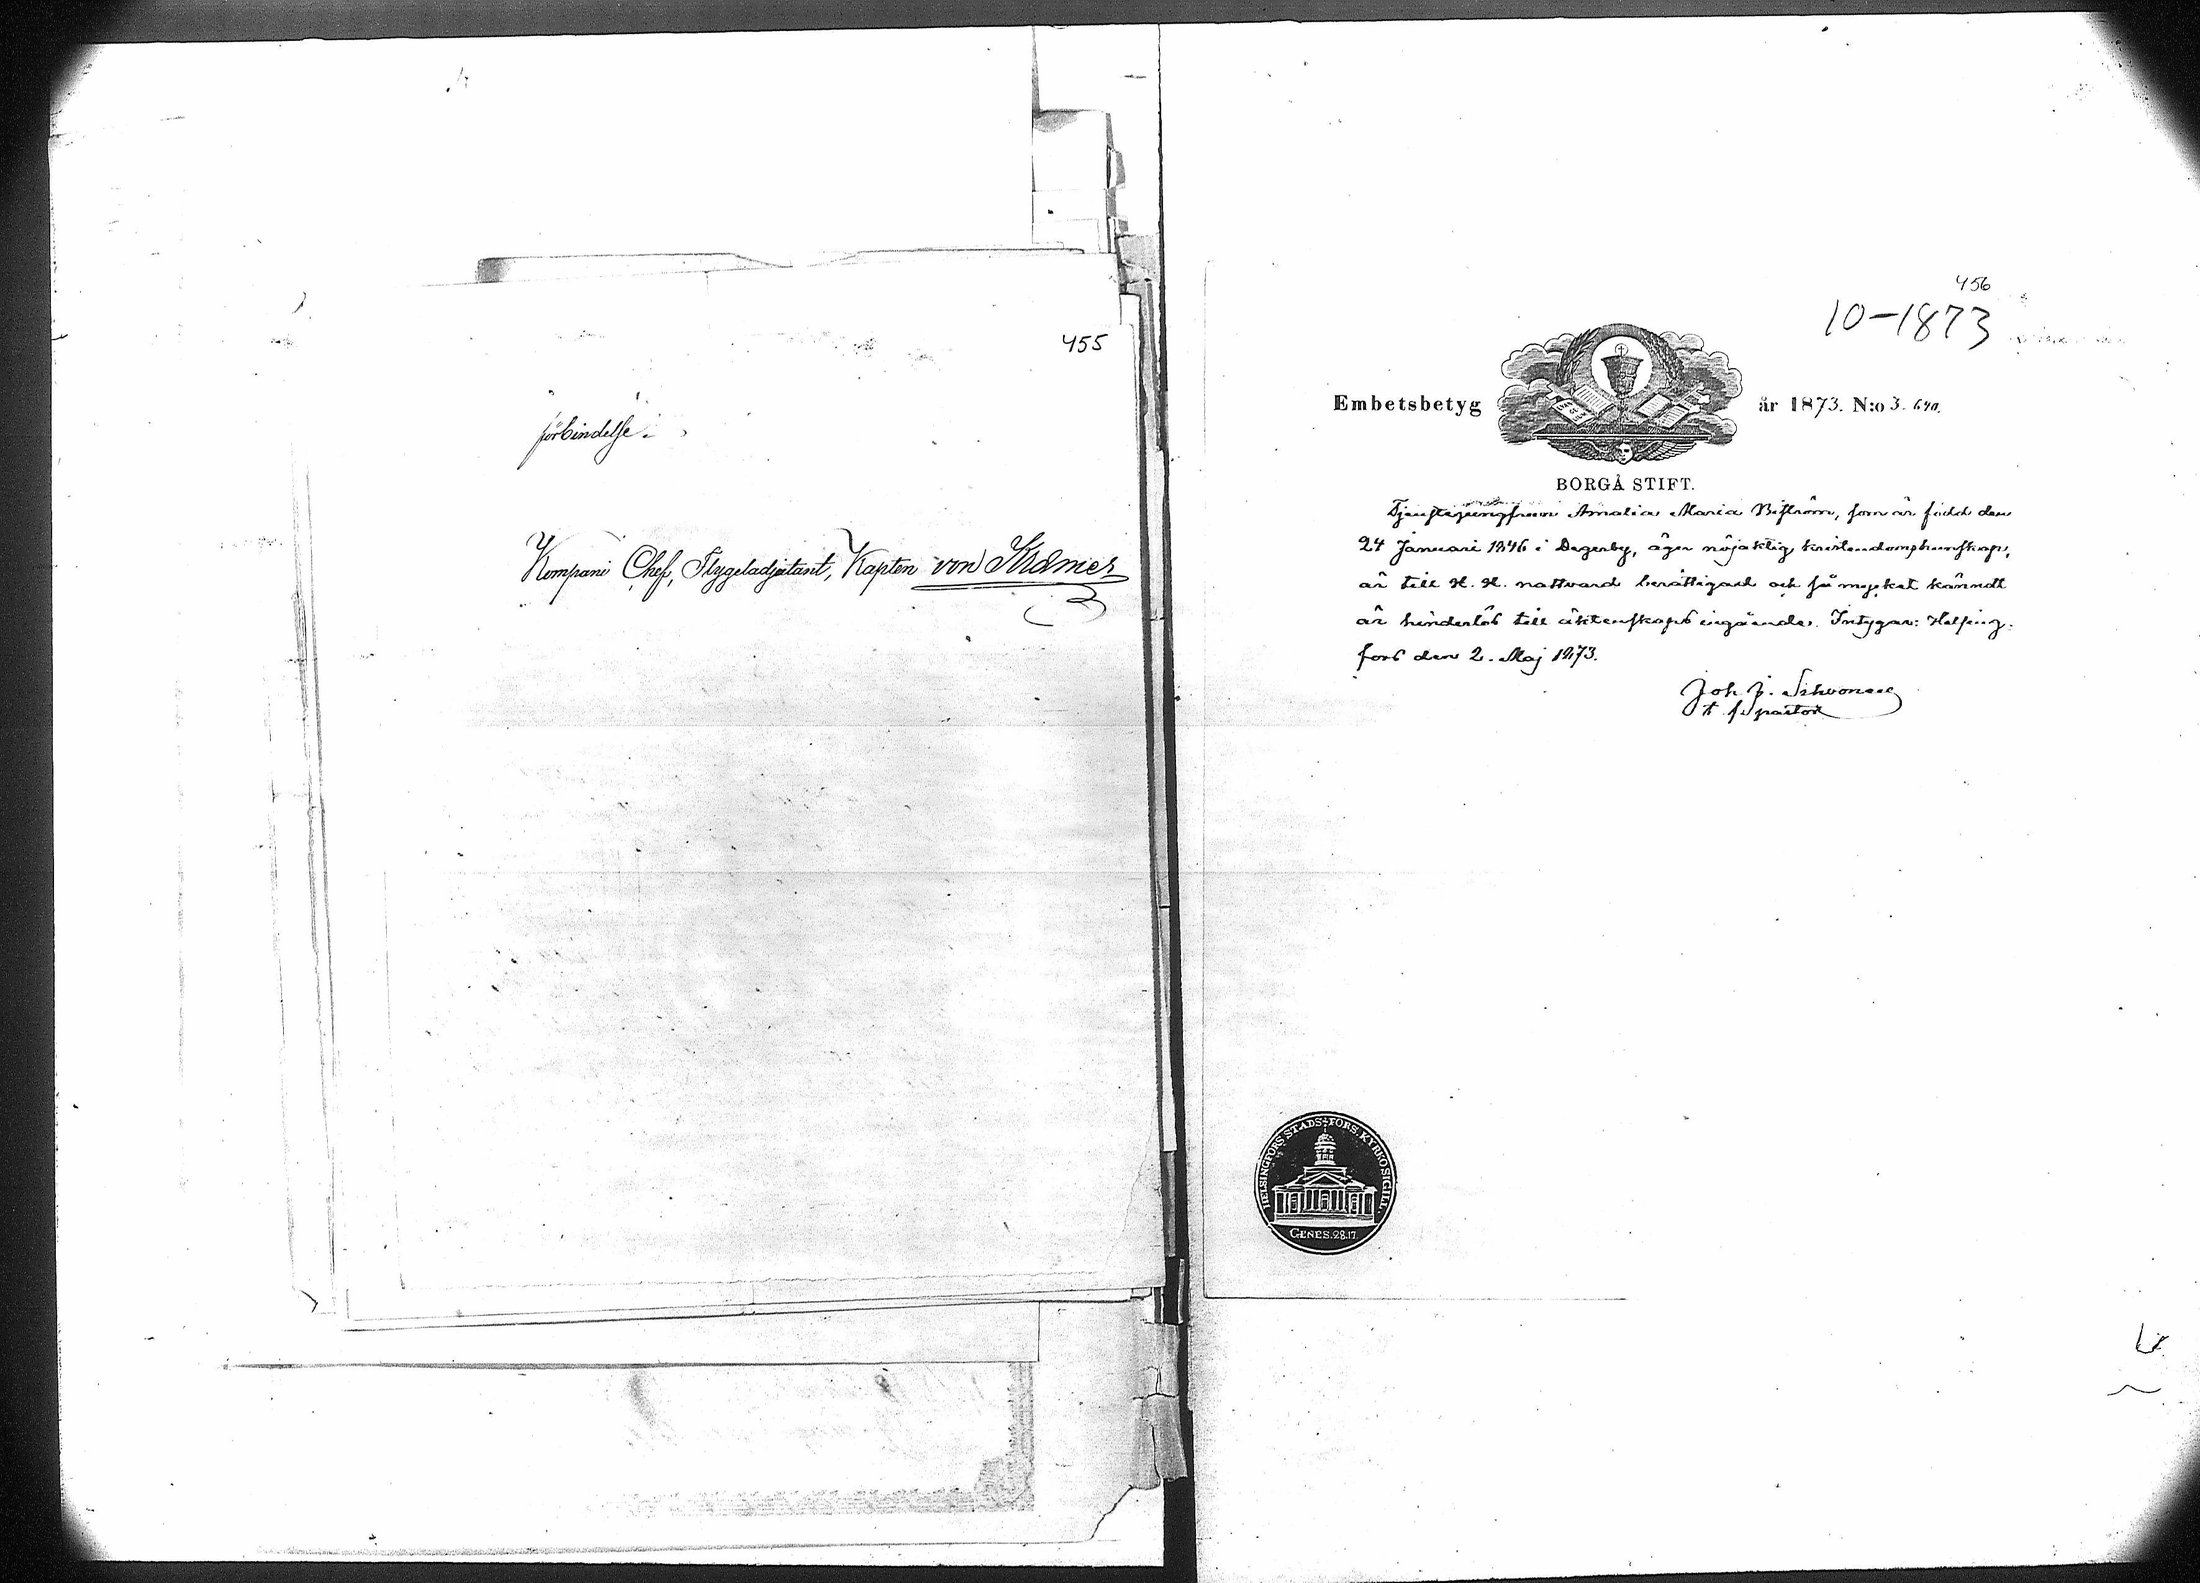 455
förbindelse.
Kompani Chef, Flygeladjutant, Kapten von Kræmer
456
10-1873
Embetsbetyg år 1873. N:o 3. 640.
BORGÅ STIFT.
Tjenstejungfrun Amalia Maria Biström, som är född den
24 Januari 1846 i Degerby, äger nöjaktig kristendomskunskap,
är till H. H. nattvard berättigad och så mycket kändt
är hinderlös till äktenskaps ingående. Intygar: Helsing-
fors den 2. Maj 1873.
Joh. J.
pastor
HELSINGFORS STADS-FÖRS. KYRKOSIGILL.
GENES. 28.17.